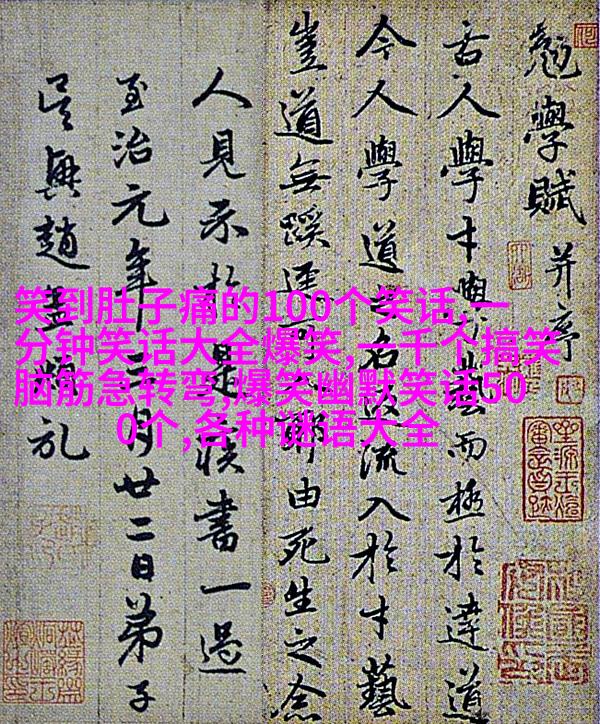 笑到肚子痛的100个笑话,一
分钟笑话大全爆笑,一千个搞笑
脑筋急转弯,爆笑幽默笑话50
0个,各种谜语大全
勉學賦并序
人學才與而極於達道
今人學道名流入於才藝
豈道無蹊由死生之念
人見示於是疾書一過
至治元年月廿二日弟子
吳興趙孟